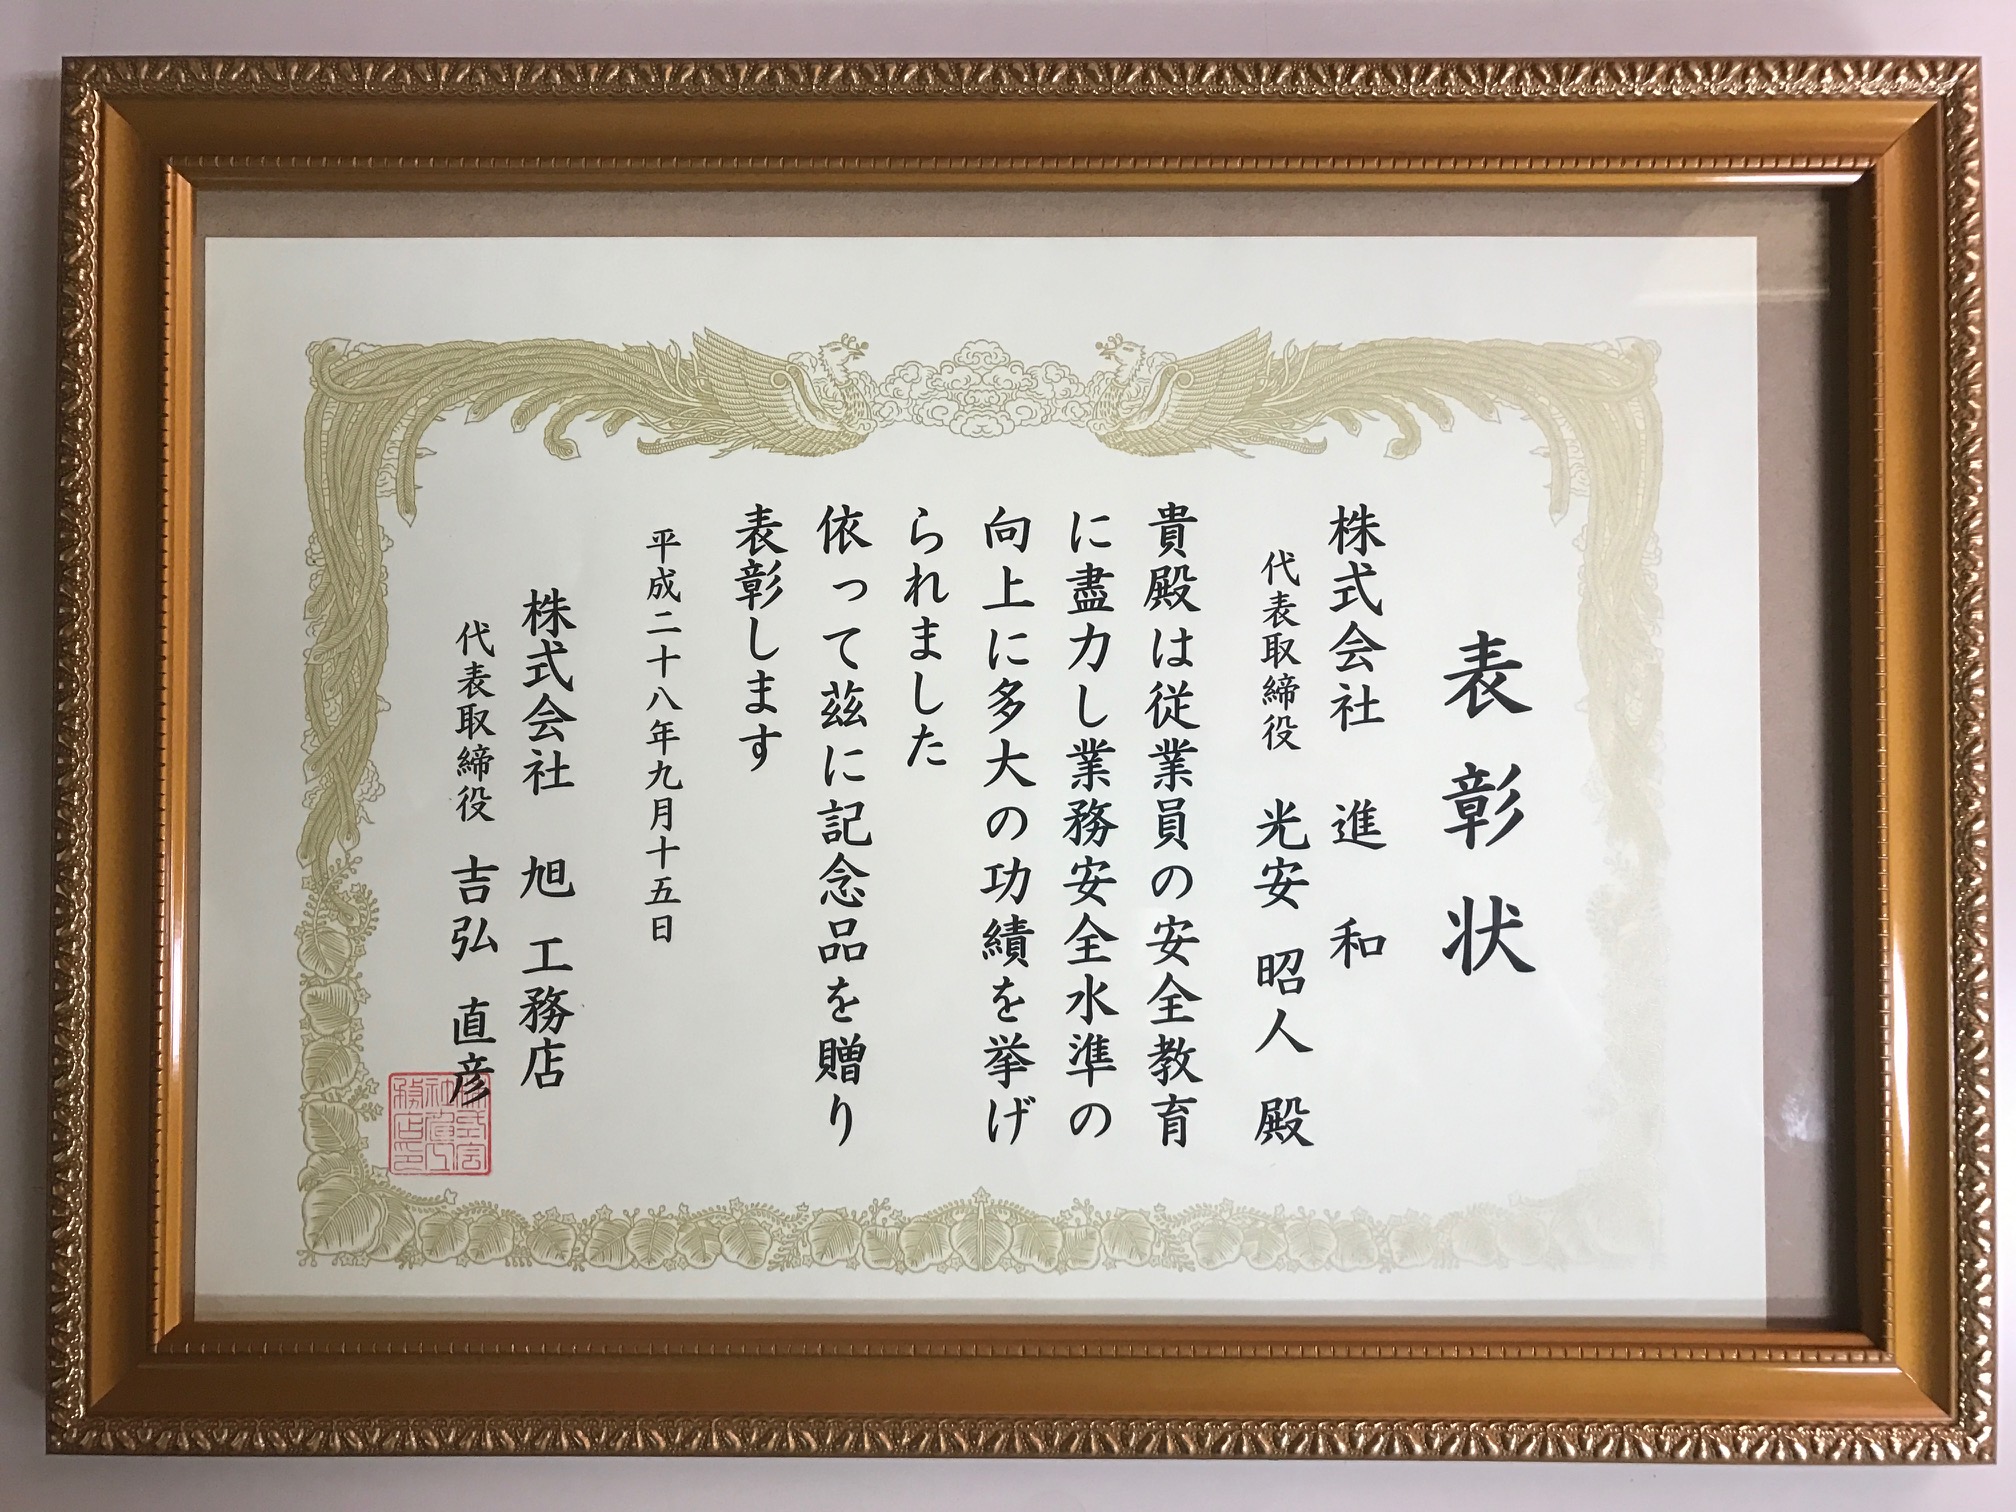 表彰状
株式会社 進和
代表取締役 光安 昭人 殿
貴殿は従業員の安全教育
に盡力し業務安全水準の
向上に多大の功績を挙げ
られました
依って茲に記念品を贈り
表彰します
平成二十八年九月十五日
株式会社 旭 工務店
代表取締役 吉弘 直彦